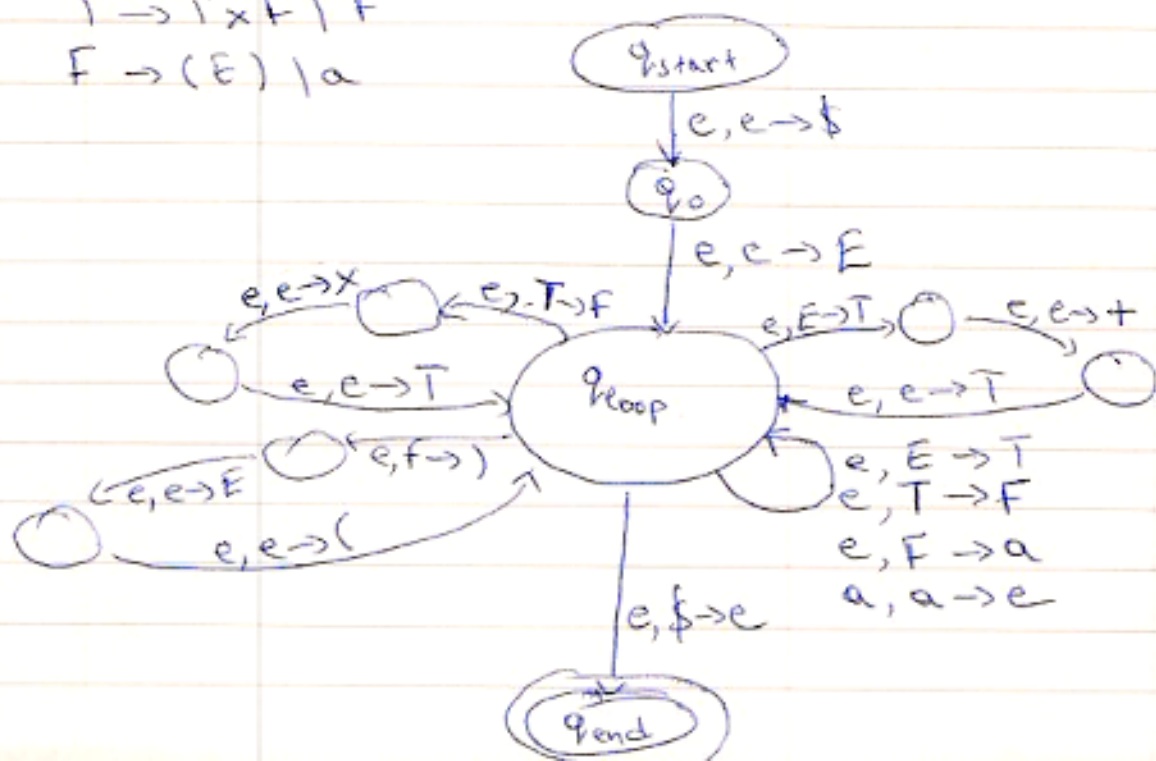 T → T x F | F
F → (E) | a
q start
e, e → $
q0
e, e → E
e, e → x
e, T → F
e, E → T
e, e → +
e, e → T
q loop
e, e → T
e, f → )
e, e → E
e, e → (
e, E → T
e, T → F
e, F → a
a, a → e
e, $ → e
q end